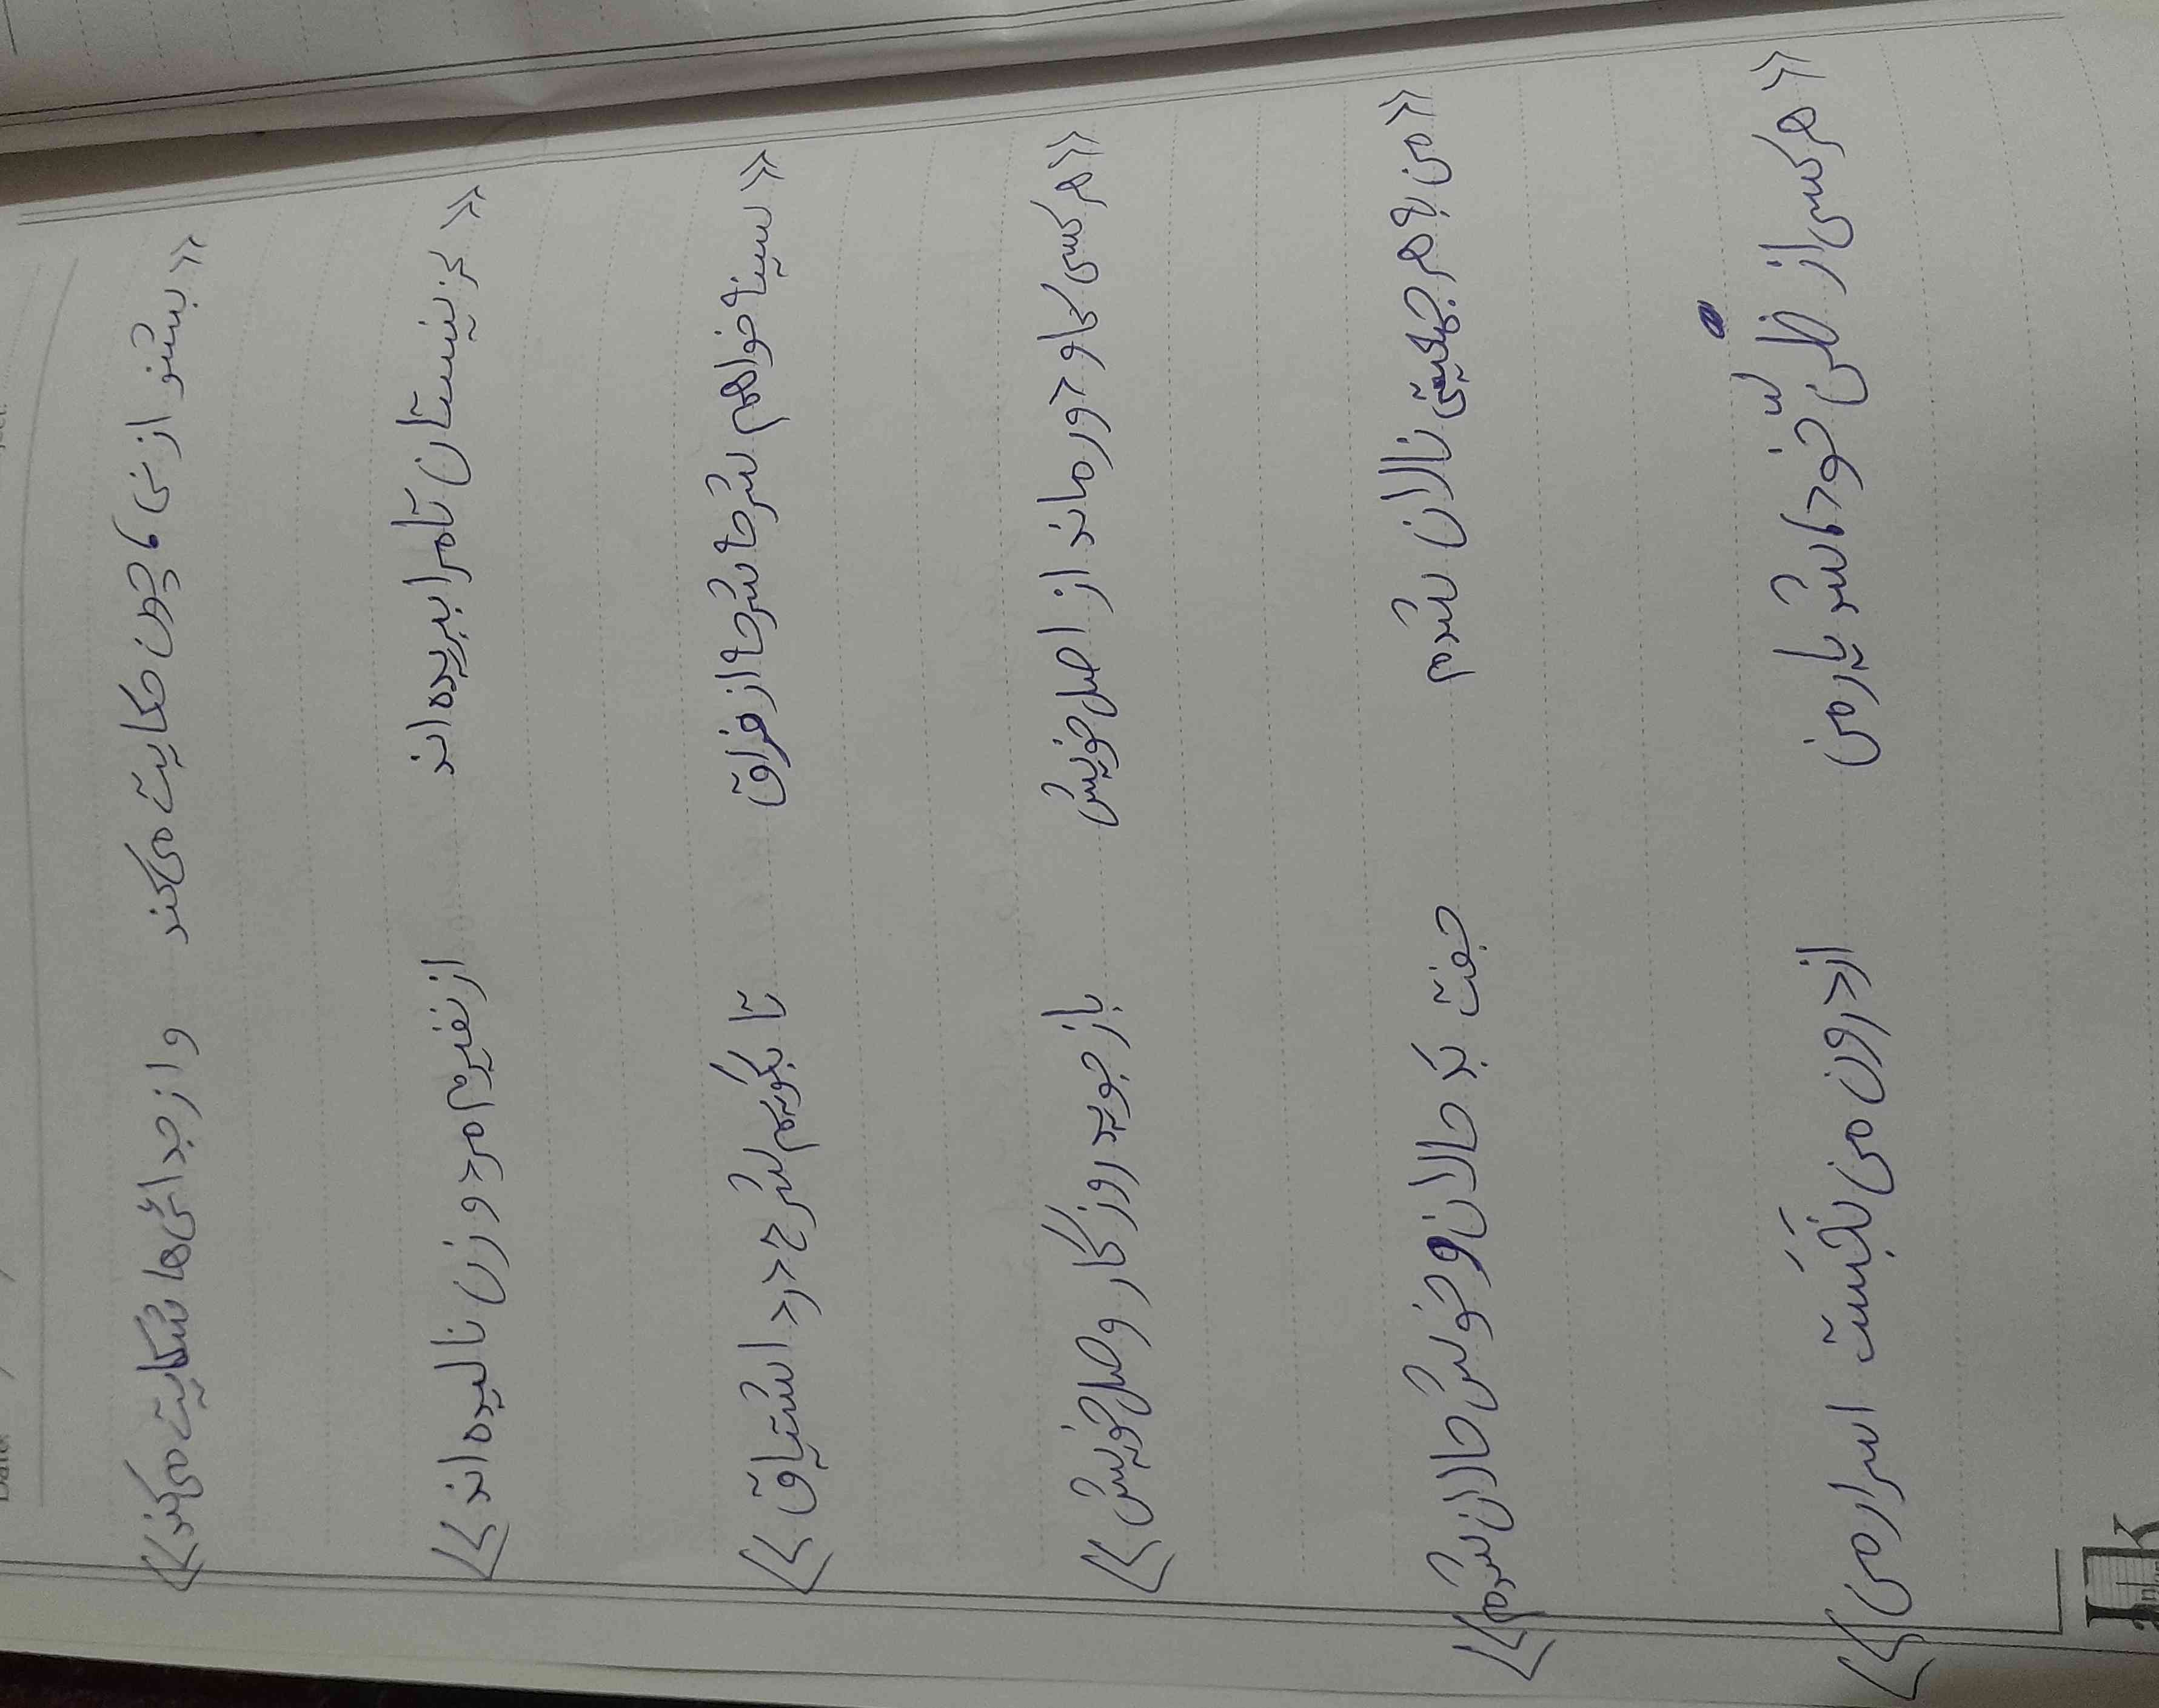 «بشنو از نی، چون حکایت می‌کند   و از جدائی‌ها شکایت می‌کند»
«کز نیستان تا مرا ببریده‌اند   از نفیرم مرد و زن نالیده‌اند»
«سینه خواهم شرحه شرحه از فراق   تا بگویم شرح درد اشتیاق»
«هر کسی کاو دور ماند از اصل خویش   باز جوید روزگار وصل خویش»
«من به هر جمعیتی نالان شدم   جفت بَد حالان و خوش حالان شدم»
«هر کسی از ظنّ خود، شد یار من   از درون من نَجَست اسرار من»